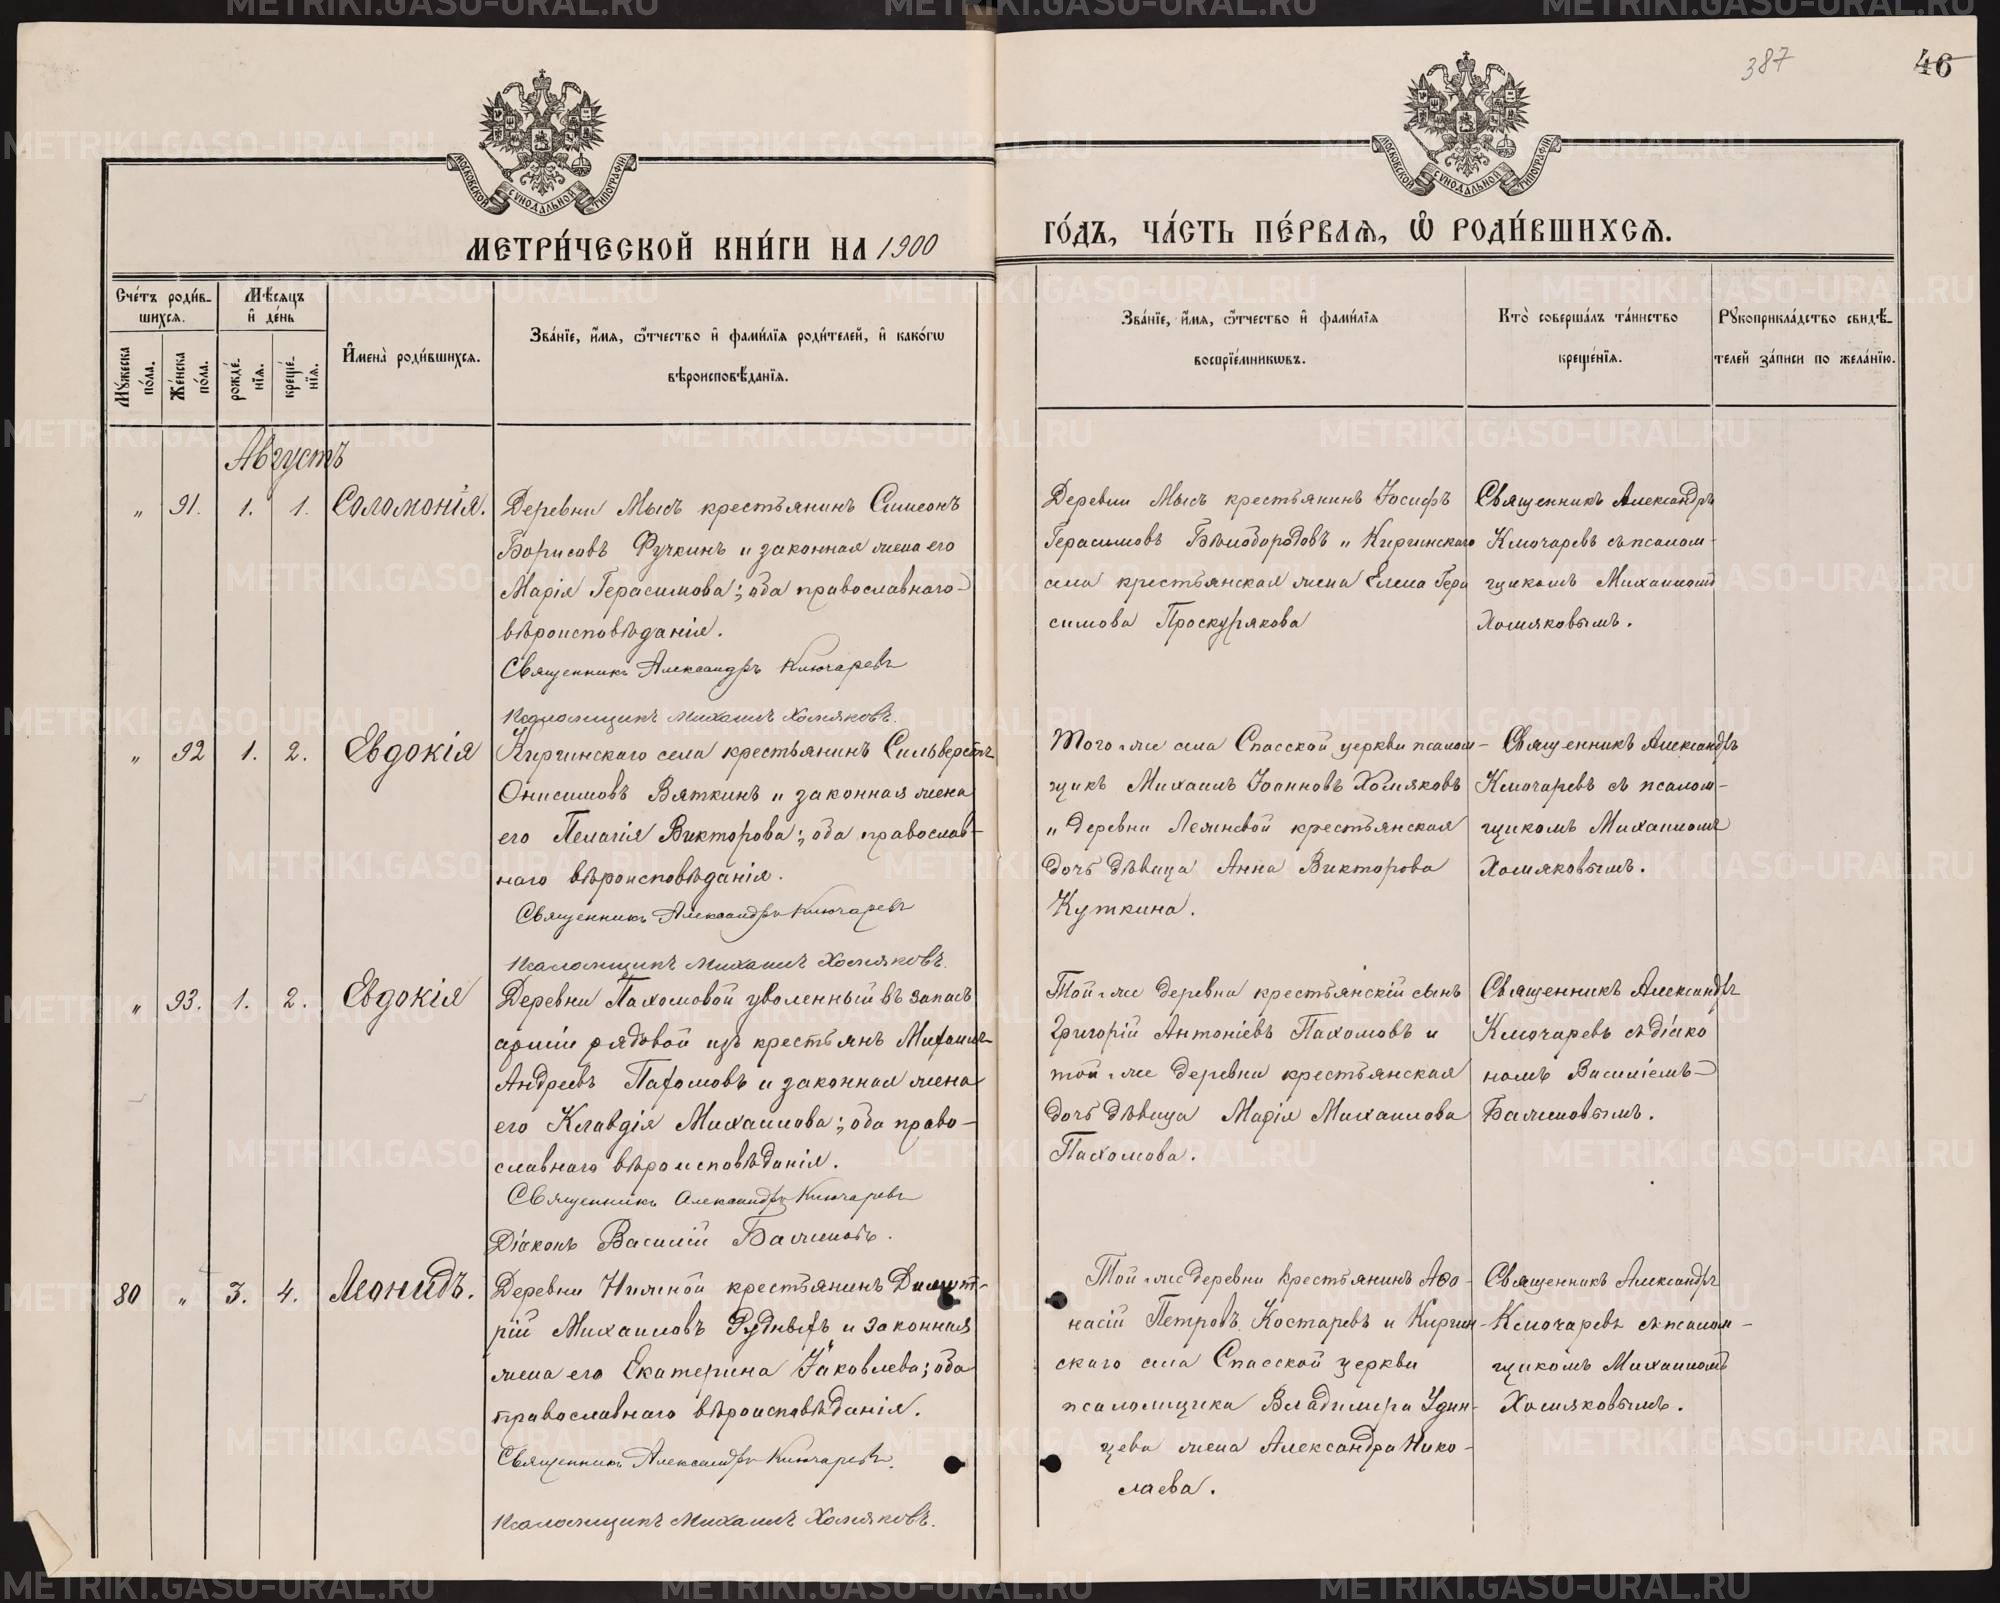 387
46
МОСКОВСКОЙ СѴНОДАЛЬНОЙ ТИПОГРАФІИ
МОСКОВСКОЙ СѴНОДАЛЬНОЙ ТИПОГРАФІИ
МЕТРИ́ЧЕСКОЙ КНИ́ГИ НА 1900
ГО́ДЪ, ЧА́СТЬ ПЕ́РВАѦ, Ѡ РОДИ́ВШИХСѦ.
Сче́тъ роди́в-
шихсѧ.
Мѣ́сѧцъ
и҆ де́нь
Му́жеска
по́ла.
Же́нска
по́ла.
рожде́-
нїѧ.
креще́-
нїѧ.
И҆мена̀ роди́вшихсѧ.
Зва́нїе, и҆́мѧ, ѻ҆́тчество и҆ фами́лїѧ роди́телей, и҆ како́гѡ
вѣроисповѣ́данїѧ.
Зва́нїе, и҆́мѧ, ѻ҆́тчество и҆ фами́лїѧ
воспрїе́мникѡвъ.
Кто̀ соверша́лъ та́инство
креще́нїѧ.
Рꙋкоприкла́дство свидѣ́-
телей за́писи по жела́нїю.
Августъ
„ 91. 1. 1. Саломонія.
Деревни Мысъ крестьянинъ Симеонъ
Борисовъ Фучкинъ и законная жена его
Марія Герасимова; оба православнаго
вѣроисповѣданія.
Священникъ Александръ Ключаревъ
Псаломщикъ Михаилъ Хомяковъ.
Деревни Мысъ крестьянинъ Іосифъ
Герасимовъ Бѣлобородовъ и Киргинскаго
села крестьянская жена Елена Гера
симова Проскурякова
Священникъ Александръ
Ключаревъ съ псалом-
щикомъ Михаиломъ
Хомяковымъ.
„ 92 1. 2. Евдокія
Киргинскаго села крестьянинъ Сильверстъ
Онисимовъ Вяткинъ и законная жена
его Пелагія Викторова; оба православ-
наго вѣроисповѣданія.
Священникъ Александръ Ключаревъ
Псаломщикъ Михаилъ Хомяковъ.
Того-же села Спасской церкви псалом-
щикъ Михаилъ Іоанновъ Хомяковъ
и деревни крестьянская
дочь дѣвица Анна Викторова
Куткина.
Священникъ Александръ
Ключаревъ съ псалом-
щикомъ Михаиломъ
Хомяковымъ.
„ 93. 1. 2. Евдокія
Деревни Пахомовой уволенный въ запасъ
арміи рядовой изъ крестьянъ Михаилъ
Андреевъ Пахомовъ и законная жена
его Клавдія Михаилова; оба право-
славнаго вѣроисповѣданія.
Священникъ Александръ Ключаревъ
Діаконъ Василій Балминовъ.
Той-же деревни крестьянскій сынъ
Григорій Антоніевъ Пахомовъ и
той-же деревни крестьянская
дочь дѣвица Марія Михаилова
Пахомова.
Священникъ Александръ
Ключаревъ съ діако
номъ Василіемъ
80 „ 3. 4. Леонидъ.
Деревни крестьянинъ Димит-
рій Михаиловъ Рудныхъ и законная
жена его Екатерина Іаковлева; оба
православнаго вѣроисповѣданія.
Священникъ Александръ Ключаревъ.
Псаломщикъ Михаилъ Хомяковъ.
Той-же деревни крестьянинъ Афо-
насій Петровъ Костаревъ и Киргин-
скаго села Спасской церкви
псаломщика Владимира Удин-
цева жена Александра Нико-
лаева.
Священникъ Александръ
Ключаревъ съ псалом-
щикомъ Михаиломъ
Хомяковымъ.
METRIKI.GASO-URAL.RU